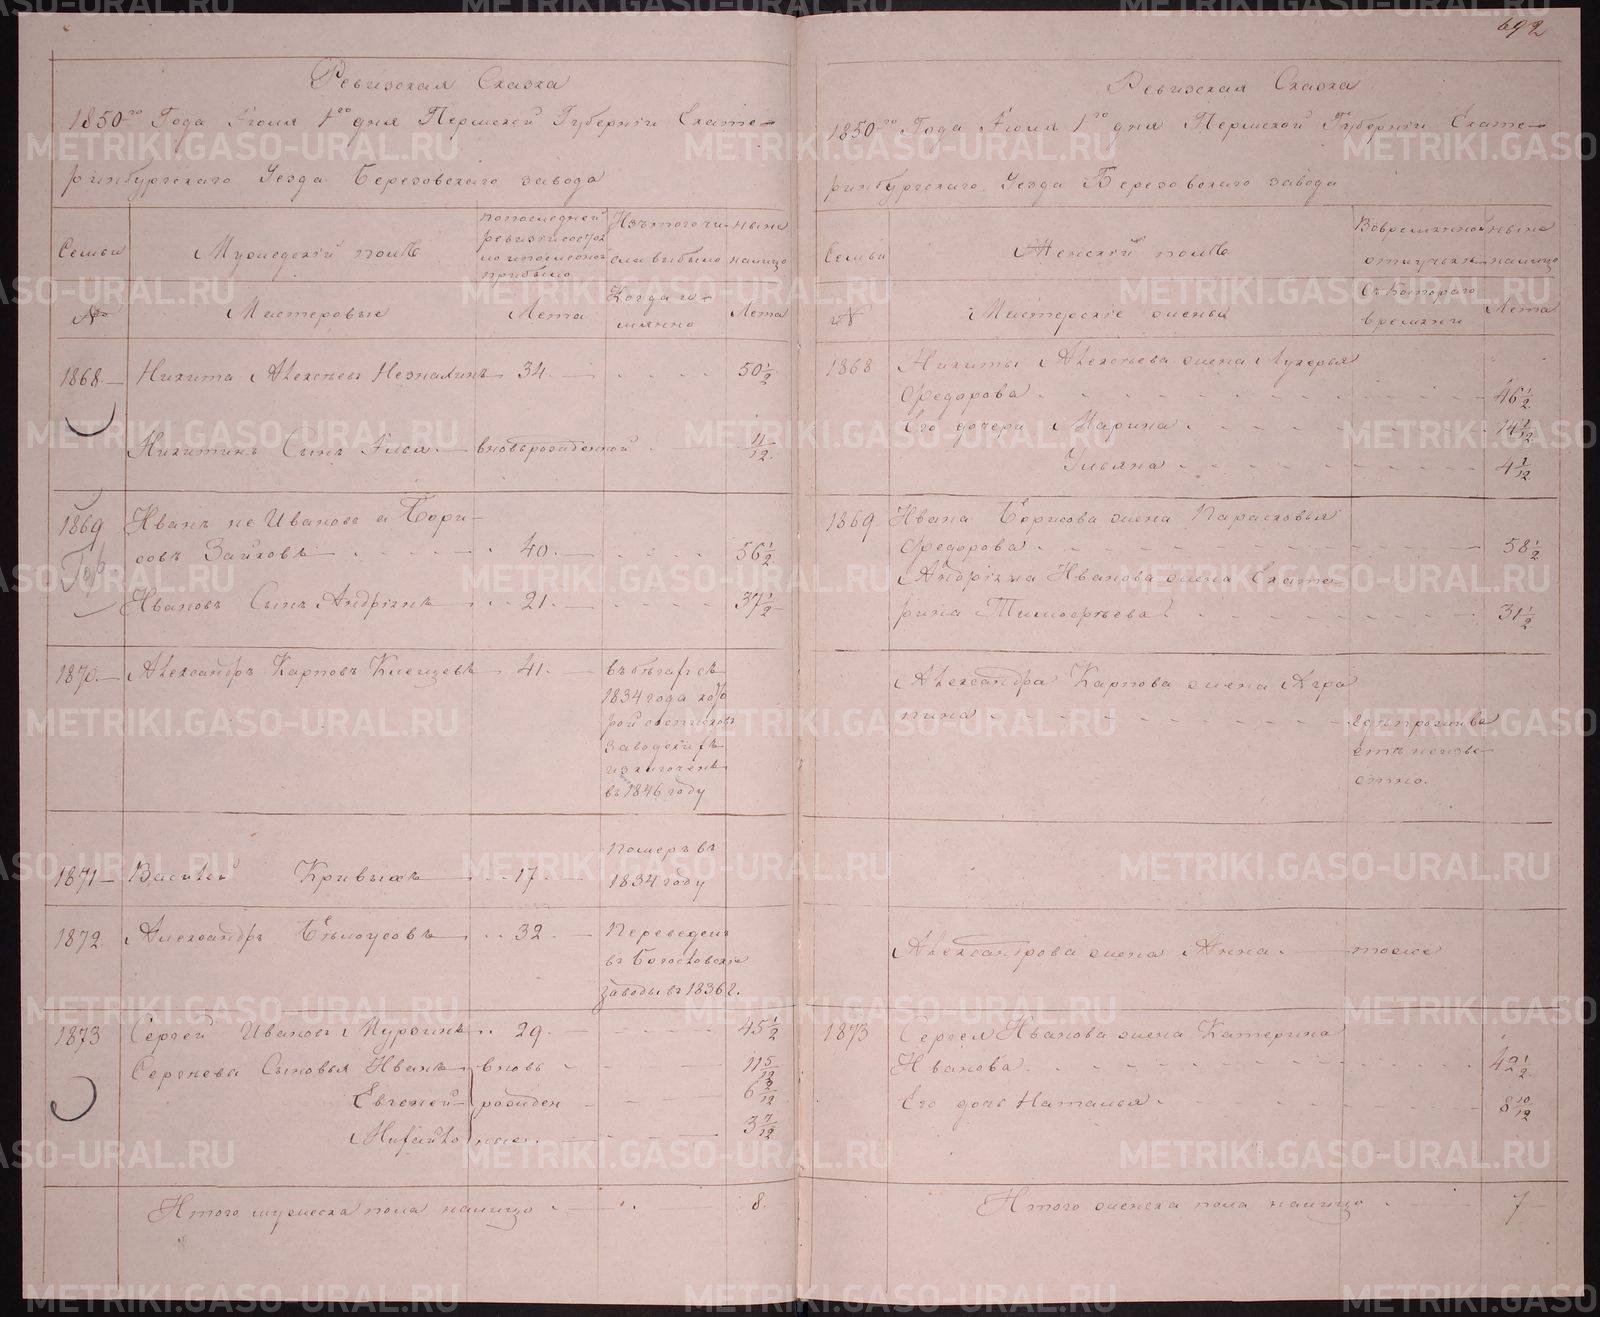 692
Ревизская Сказка
1850-го Года Июля 1го дня Пермской Губернiи Екате-
ринбургскаго Уезда Березовскаго завода
Семьи
№
Мужеский полъ
Мастеровые
по последней
ревизiи состоя
ло и после оной
прибыло
Лета
Изъ того чи-
сла выбыло
Когда имянно
ныне
налицо
Лета
1868. Никита Алексеевъ Незналинъ 34. 50 1/2
Никитинъ Сынъ Илья вновьрожденной 11/12
1869 Иванъ не Ивановъ а Бори-
совъ Зайковъ 40. 56 1/2
Ивановъ Сынъ Андрiянъ 21. 37 1/2
1870. Александръ Карповъ Клещевъ 41. въ бегахъ съ
1834 года кото
рой
заводскихъ
изключенъ
въ 1846 году
1871 Василей Кривыхъ 17 Померъ въ
1834 году
1872 Александръ Белоусовъ 32. Переведенъ
въ Богословскiе
заводы въ 1836 г.
1873 Сергей Ивановъ Пургинъ 29. 45 1/2
Сергеева Сыновья Иванъ вновь 11 5/12
Евгеней рожден 6 3/12
Михайло ные. 3 7/12
Итого мужеска пола налицо 8.
Ревизская Сказка
1850-го Года Июля 1го дня Пермской Губернiи Екате-
ринбургскаго Уезда Березовскаго завода
Семьи
№
Женскiй полъ
Мастерскiе жены
Во временной
отлучке
Съ котораго
времяни
ныне
налицо
Лета
1868 Никиты Алексеева жена Лукерья
Федорова 46 1/2
Его дочери Марина 14 1/12
Ульяна 4 1/12
1869. Ивана Борисова жена Парасковья
Федорова 58 1/2
Андрiяна Иванова жена Екате
рина Тимофеева 31 1/2
Александра Карпова жена Агра
пина где прожива
етъ неизве
стно.
Александрова жена Анна. тоже
1873 Сергея Иванова жена Катерина
Иванова 42 1/2
Его дочь Наталья 8 10/12
Итого женска пола налицо 7
METRIKI.GASO-URAL.RU